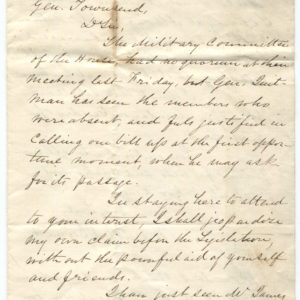 Gen. Townsend,
D Sir,
The Military Committee
of the House, had no quorum at their
meeting last Friday, but Gen. Quit-
man has seen the members who
were absent, and feels justified in
calling our bill up at the first oppor-
tune moment, when he may ask
for its passage.
In staying here to attend
to your interest, I shall jeopardize
my own claim before the Legislature,
without the powerful aid of yourself
and friends.
I have just seen Mr James